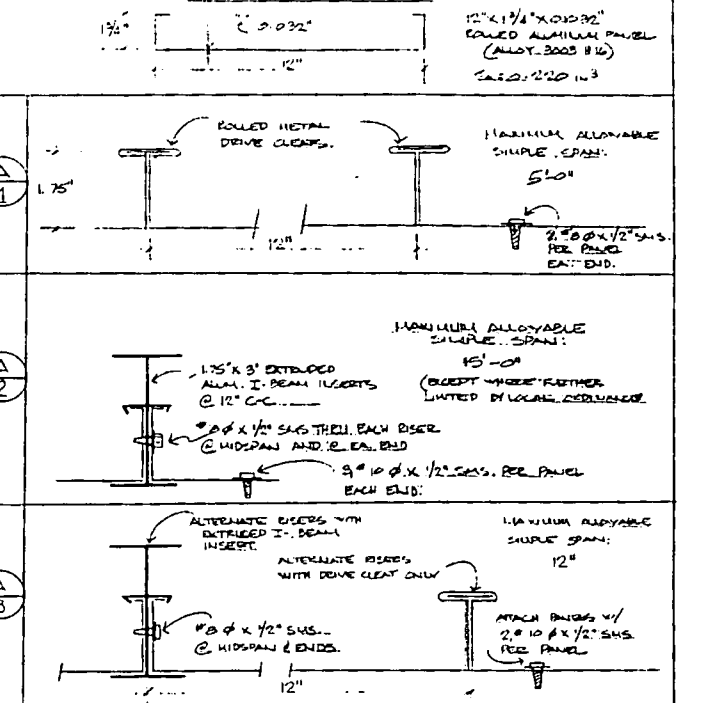 1¾"
0.032"
12"
12" X 1¾" X 0.032"
ROLLED ALUMINUM PANEL
(ALLOY 3003 H16)
ROLLED METAL
DRIVE CLEATS.
MAXIMUM ALLOWABLE
SIMPLE SPAN:
5'-0"
A
1
1.75"
12"
2, #8 Ø X 1/2" SMS.
PER PANEL
EA. END.
MAXIMUM ALLOWABLE
SIMPLE SPAN:
15'-0"
(EXCEPT WHERE FURTHER
LIMITED BY LOCAL
A
2
1.75" X 3" EXTRUDED
ALUM. I-BEAM INSERTS
@ 12" C-C
#8 Ø X 1/2" SMS THRU EACH RISER
@ MIDSPAN AND @ EA. END
#10 Ø X 1/2" SMS. PER PANEL
EACH END.
ALTERNATE RISERS WITH
EXTRUDED I-BEAM
INSERT.
MAXIMUM ALLOWABLE
SIMPLE SPAN:
12"
ALTERNATE RISERS
WITH DRIVE CLEAT ONLY
A
3
#8 Ø X 1/2" SMS.
@ MIDSPAN & ENDS.
ATTACH PANELS W/
2, #10 Ø X 1/2" SMS.
PER PANEL
12"